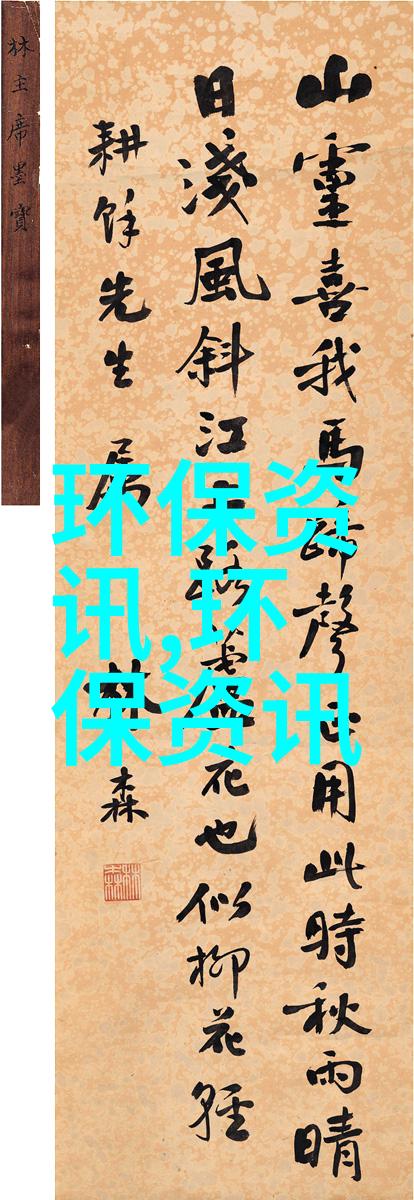 山靈喜我馬蹄聲正用此時秋雨晴
日淺風斜江路蘆花也似柳花輕
耕餘先生 属 林森
林森
林主席墨寶
环保资
讯,环
保资讯